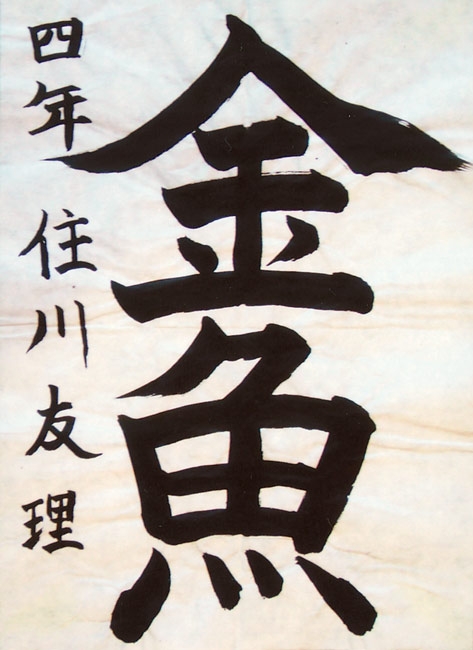 金魚
四年 住川友理